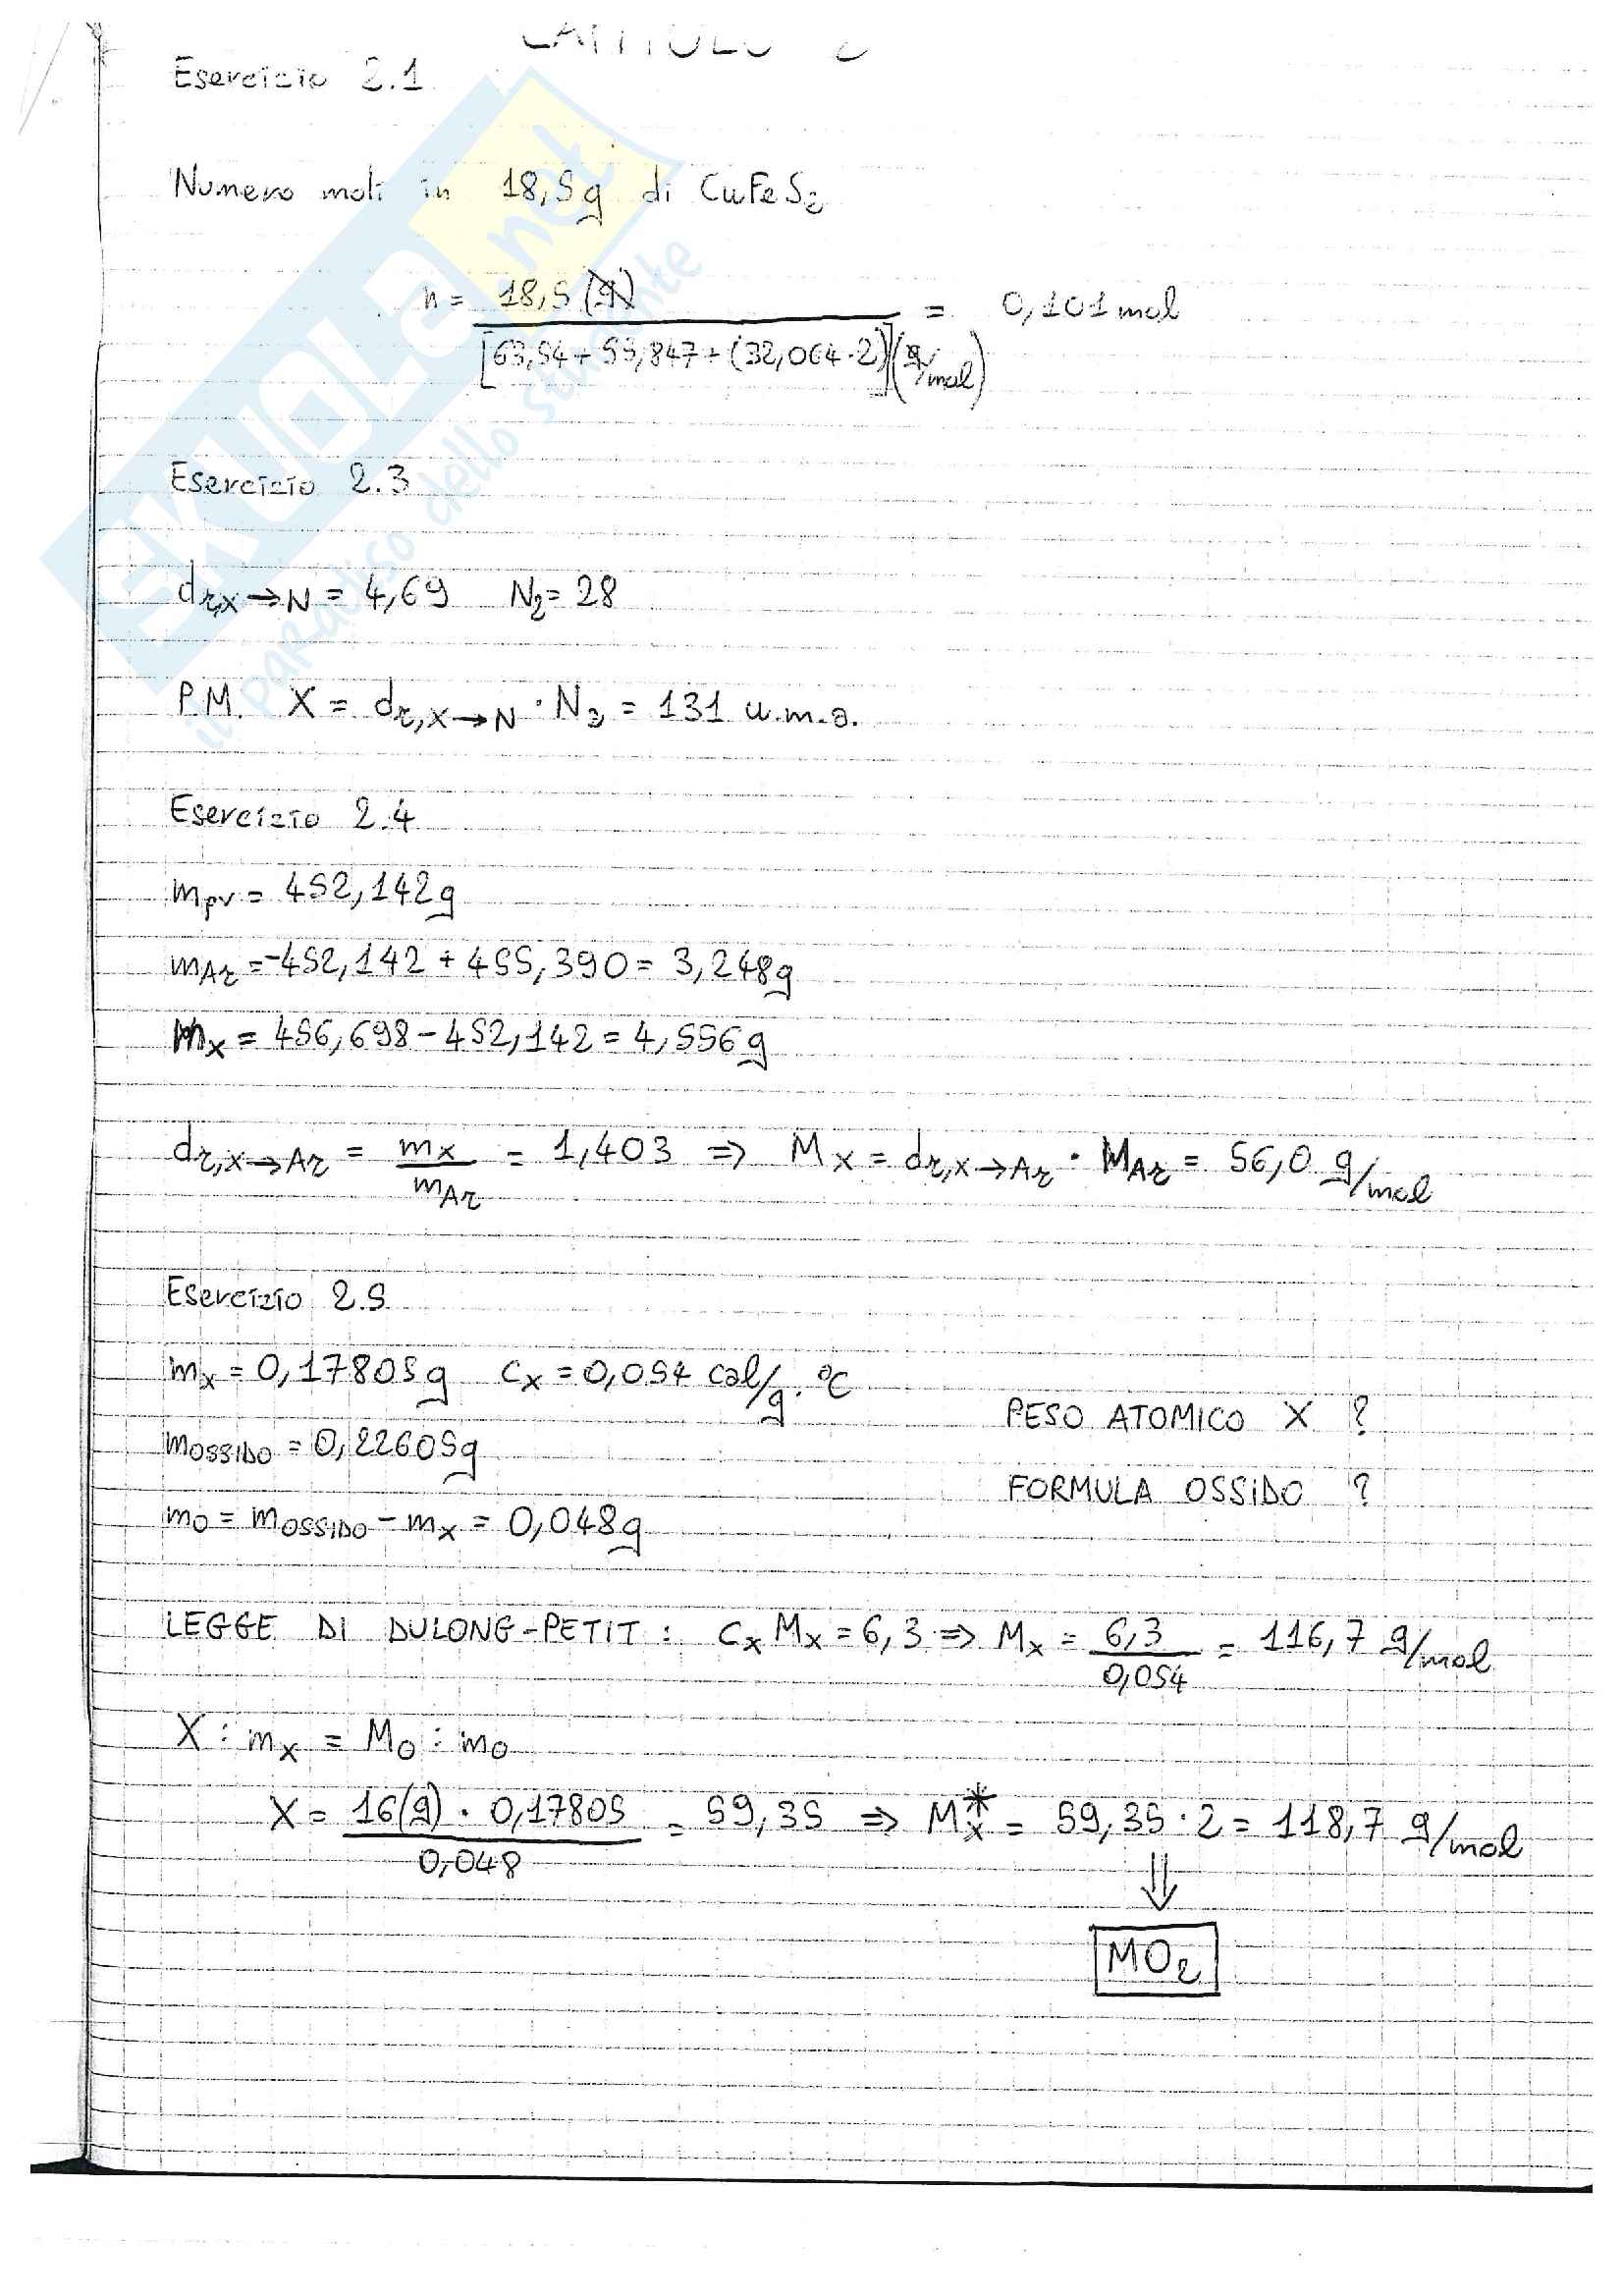 CAPITOLO 2
Esercizio 2.1
Numero moli in 18,5g di CuFeS₂
n = 18,5 (g) / [63,54 + 55,847 + (32,064·2)] (g/mol) = 0,101 mol
Esercizio 2.3
dr,x→N = 4,69 N₂ = 28
P.M. X = dr,x→N · N₂ = 131 u.m.a.
Esercizio 2.4
mpv = 452,142g
mAr = -452,142 + 455,390 = 3,248g
mx = 456,698 - 452,142 = 4,556g
dr,x→Ar = mx / mAr = 1,403 ⇒ Mx = dr,x→Ar · MAr = 56,0 g/mol
Esercizio 2.5
mx = 0,17805g cx = 0,054 cal/g·°C
PESO ATOMICO X ?
mOSSIDO = 0,22605g
FORMULA OSSIDO ?
mO = mOSSIDO - mx = 0,048g
LEGGE DI DULONG-PETIT : cx Mx = 6,3 ⇒ Mx = 6,3 / 0,054 = 116,7 g/mol
X : mx = MO : mO
X = 16(g) · 0,17805 / 0,048 = 59,35 ⇒ Mx* = 59,35 · 2 = 118,7 g/mol
⇓
MO₂
SKUOLA.net
il paradiso dello studente